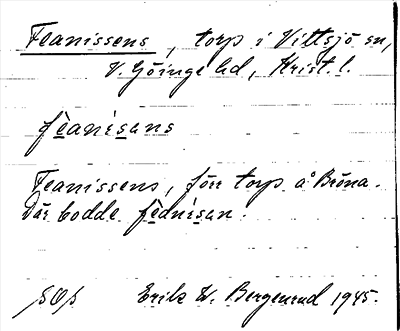 Feanissens, torp i Vittsjö sn,
V. Göinge hd, Krist. l.
fèanisans
Feanissens, förr torp å Bröna.
Där bodde fèanisan.
Erik W. Bergenrud 1945.